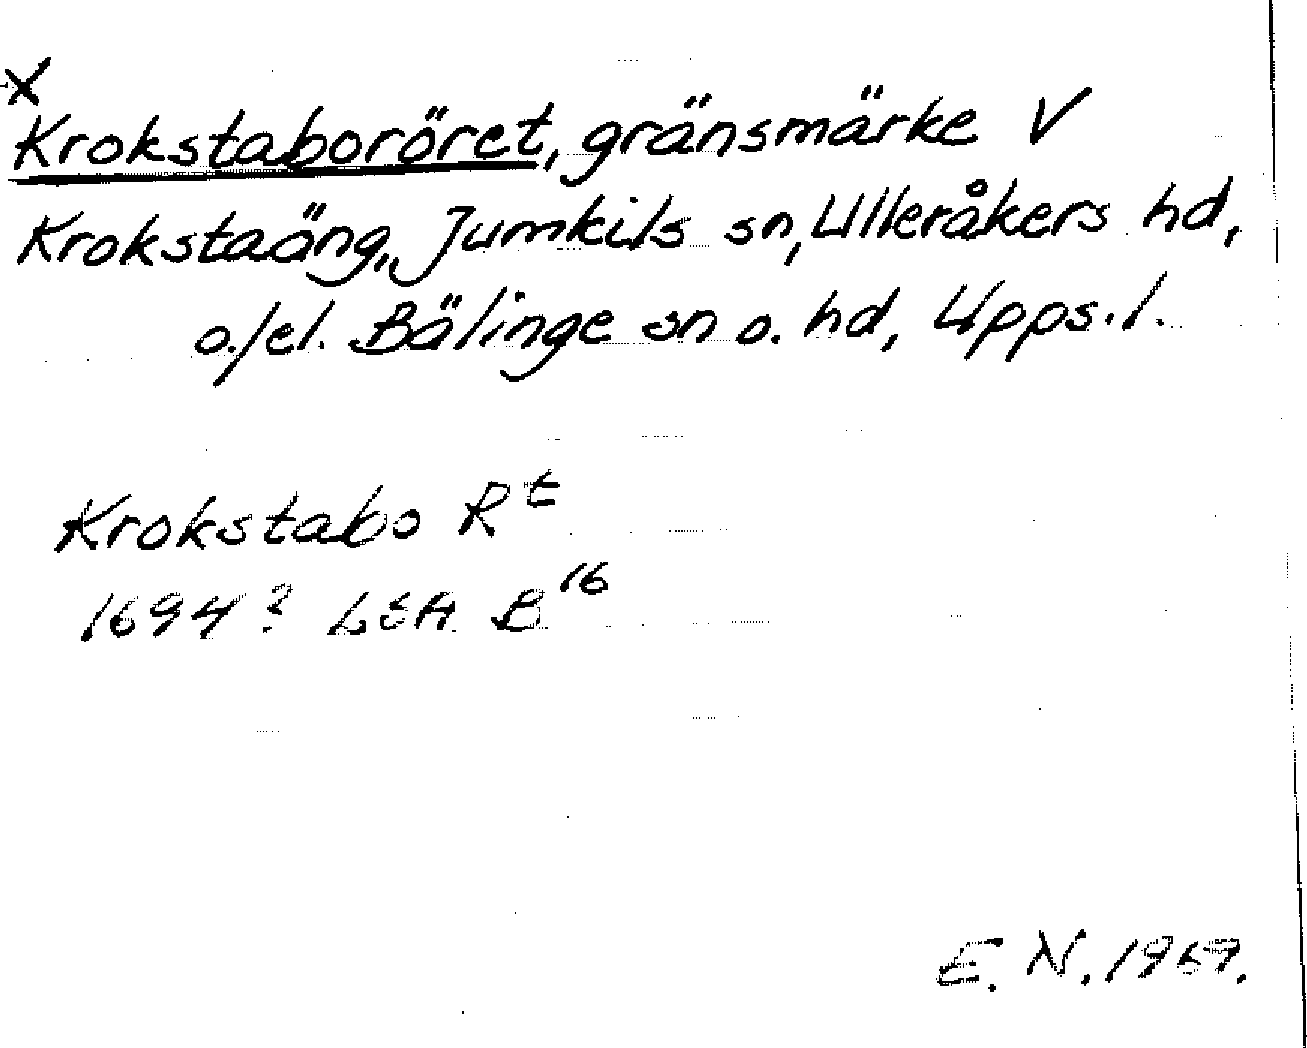 x
Krokstaboröret, gränsmärke V
Krokstaäng, Jumkils sn, Ulleråkers hd,
o./el. Bälinge sn o. hd, Upps. l.
Krokstabo Rt
1694? LSA B16
E. N. 1959.